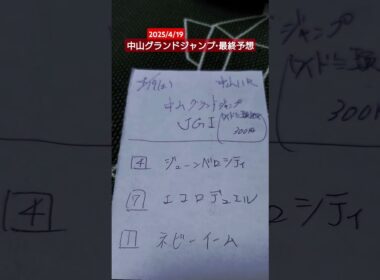 2025/4/19
中山グランドジャンプ・最終予想
中山11R
中山グランドジャンプ
JG1
300円
4 ジューンベロシティ
7 エコロデュエル
1 ネビーイーム
ジャンプ
300円
4
シティ